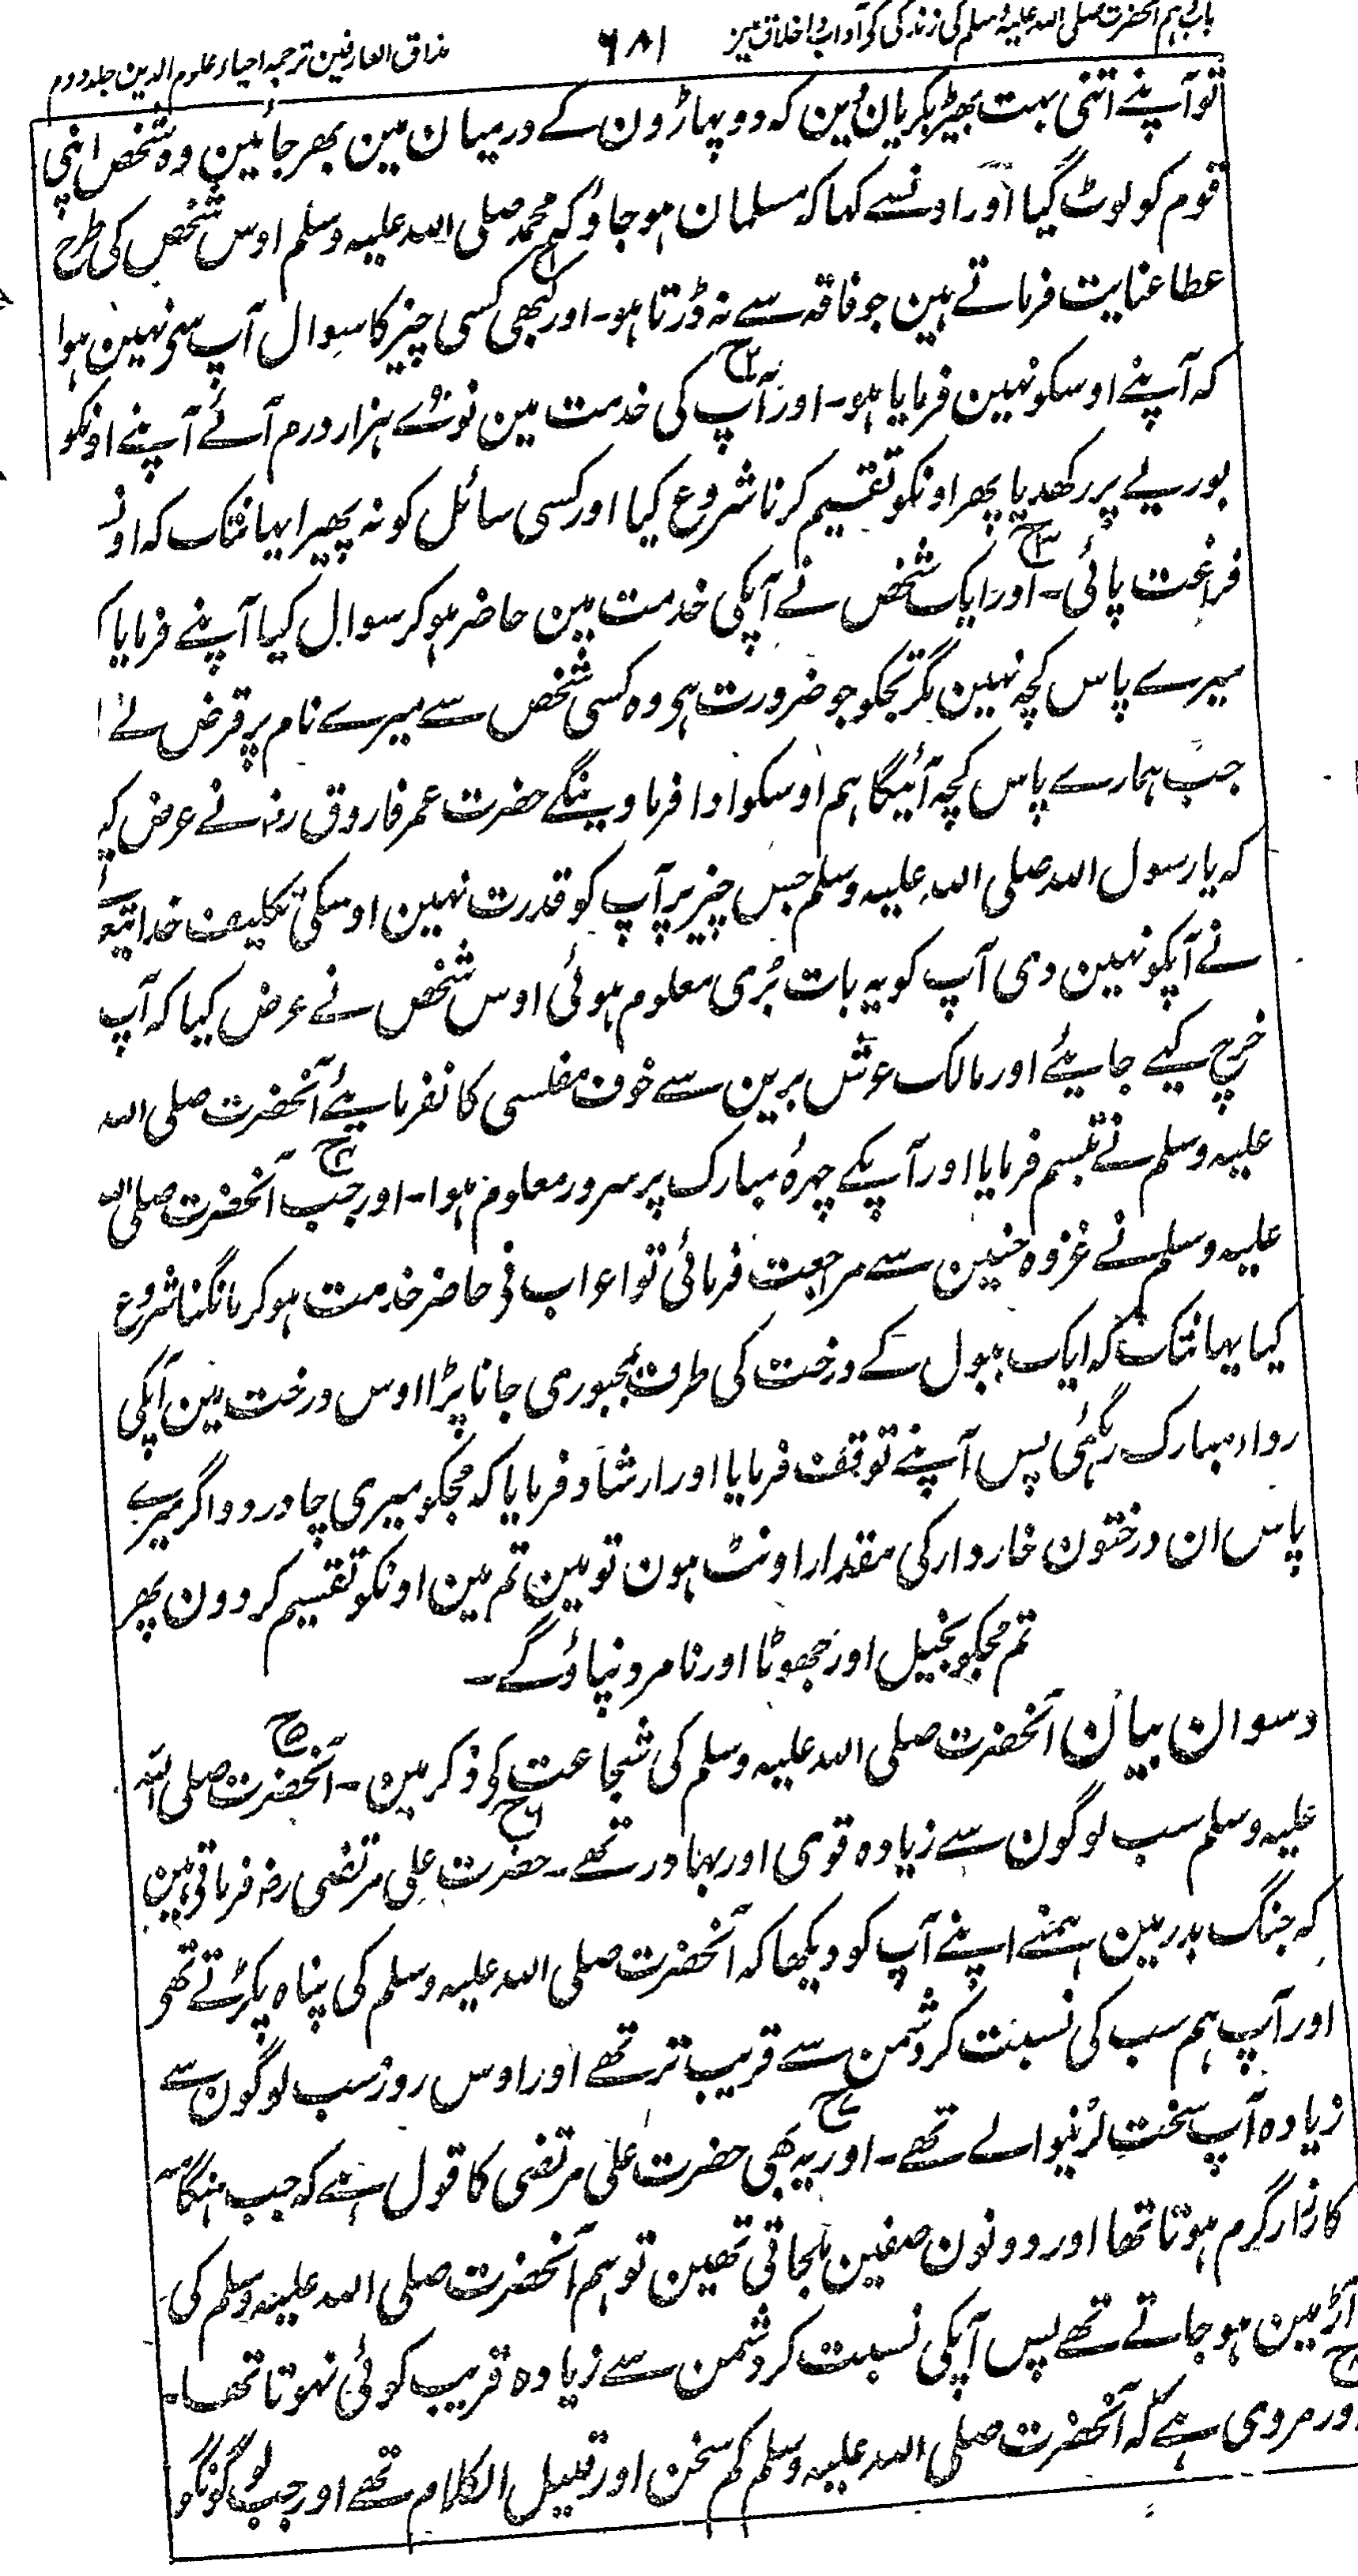 باب دہم آنحضرت صلی اللہ علیہ وسلم کی زندگی کے آداب و اخلاق میں
۶۸۱
مذاق العارفین ترجمہ احیاء علوم الدین جلد دوم
تو آپنے اتنی بہت بھیڑ بکریان دین کہ دو پہاڑون کے درمیان مین بھر جائین وہ شخص اپنی
قوم کو لوٹ گیا اور اونسے کہا کہ مسلمان ہو جاؤ کہ محمد صلی اللہ علیہ وسلم اوس شخص کی طرح
عطا عنایت فرماتے ہین جو فاقہ سے نہ ڈرتا ہو۔ اور کبھی کسی چیز کا سوال آپ سے نہین ہوا
کہ آپنے اوسکو نہین فرمایا ہو۔ اور آپ کی خدمت مین نوّے ہزار درم آئے آپنے اونکو
بوریے پر رکھدیا پھر اونکو تقسیم کرنا شروع کیا اور کسی سائل کو نہ پھیرا یہانتک کہ اونسے
فراغت پائی۔ اور ایک شخص نے آپکی خدمت مین حاضر ہو کر سوال کیا آپنے فرمایا کہ
میرے پاس کچھ نہین مگر تجکو جو ضرورت ہی وہ کسی شخص سے میرے نام پر قرض لے
جب ہمارے پاس کچھ آئیگا ہم اوسکو ادا فرماوینگے حضرت عمر فاروق رضہ نے عرض کیا
کہ یا رسول اللہ صلی اللہ علیہ وسلم جس چیز پر آپ کو قدرت نہین اوسکی تکلیف خدا تعالے
نے آپکو نہین دی آپ کو یہ بات بُری معلوم ہوئی اوس شخص نے عرض کیا کہ آپ
خرچ کیے جایئے اور مالک عرش برین سے خوف مفلسی کا نفرمایئے آنحضرت صلی اللہ
علیہ وسلم نے تبسم فرمایا اور آپکے چہرۂ مبارک پر سرور معلوم ہوا۔ اور جب آنحضرت صلی اللہ
علیہ وسلم نے غزوہ حنین سے مراجعت فرمائی تو اعراب نے حاضر خدمت ہو کر مانگنا شروع
کیا یہانتک کہ ایک ببول کے درخت کی طرف بمجبوری جانا پڑا اوس درخت مین آپکی
رداء مبارک رہگئی پس آپنے توقف فرمایا اور ارشاد فرمایا کہ مجکو میری چادر دو اگر میرے
پاس ان درختون خاردار کی مقدار اونٹ ہون تو مین تم مین اونکو تقسیم کردون پھر
تم مجکو بخیل اور جھوٹا اور نامرد نپاؤگے۔
دسوان بیان آنحضرت صلی اللہ علیہ وسلم کی شجاعت کے ذکر مین۔ آنحضرت صلی اللہ
علیہ وسلم سب لوگون سے زیادہ قوی اور بہادر تھے۔ حضرت علی مرتضی رضہ فرماتے ہین
کہ جنگ بدر مین ہمنے اپنے آپ کو دیکھا کہ آنحضرت صلی اللہ علیہ وسلم کی پناہ پکڑتے تھے
اور آپ ہم سب کی نسبت کر دشمن سے قریب تر تھے اور اوس روز سب لوگون سے
زیادہ آپ سخت لڑنیوالے تھے۔ اور یہ بھی حضرت علی مرتضی کا قول ہے کہ جب ہنگامہ
کارزار گرم ہوتا تھا اور دونون صفین ملجاتی تھین تو ہم آنحضرت صلی اللہ علیہ وسلم کی
آڑ مین ہو جاتے تھے پس آپکی نسبت کر دشمن سے زیادہ قریب کوئی نہوتا تھا۔
اور مروی ہے کہ آنحضرت صلی اللہ علیہ وسلم کم سخن اور قلیل الکلام تھے اور جب لوگونکو